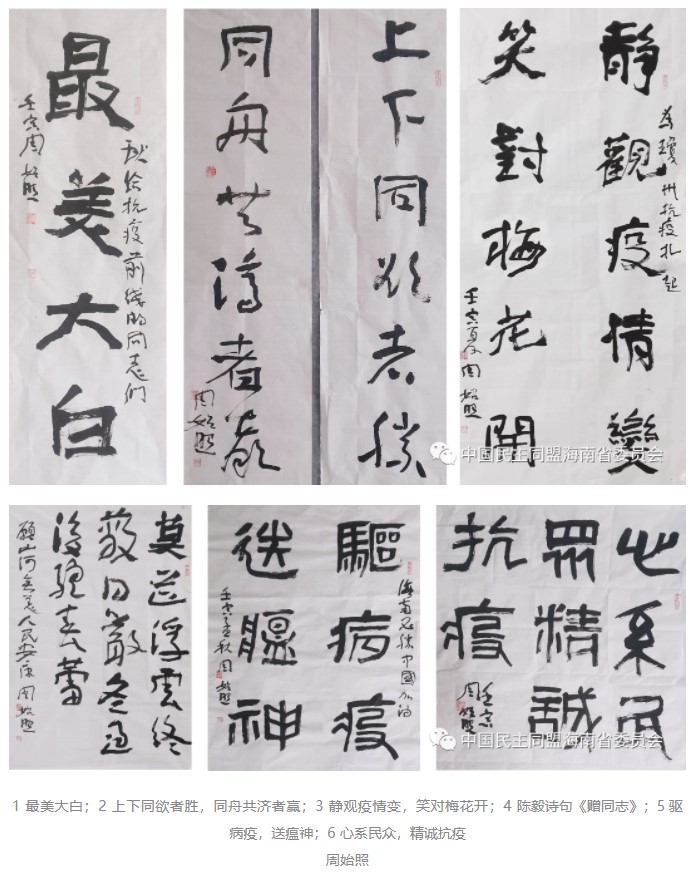 最美大白
献给抗疫前线的同志们
壬寅周始照
上下同欲者胜
同舟共济者赢
周始照
静觀疫情變
为瓊州抗疫扎起
笑對梅花開
壬寅夏周始照
中国民主同盟海南省委员会
莫道浮雲終
蔽日嚴冬過
後綻春蕾
願山河無恙人民安康周始照
驅病疫
海南必胜中國加油
送瘟神
壬寅孟秋周始照
心系民
眾精誠
抗疫
壬寅
周始照
中国民主同盟海南省委员会
1 最美大白；2 上下同欲者胜，同舟共济者赢；3 静观疫情变，笑对梅花开；4 陈毅诗句《赠同志》；5 驱
病疫，送瘟神；6 心系民众，精诚抗疫
周始照